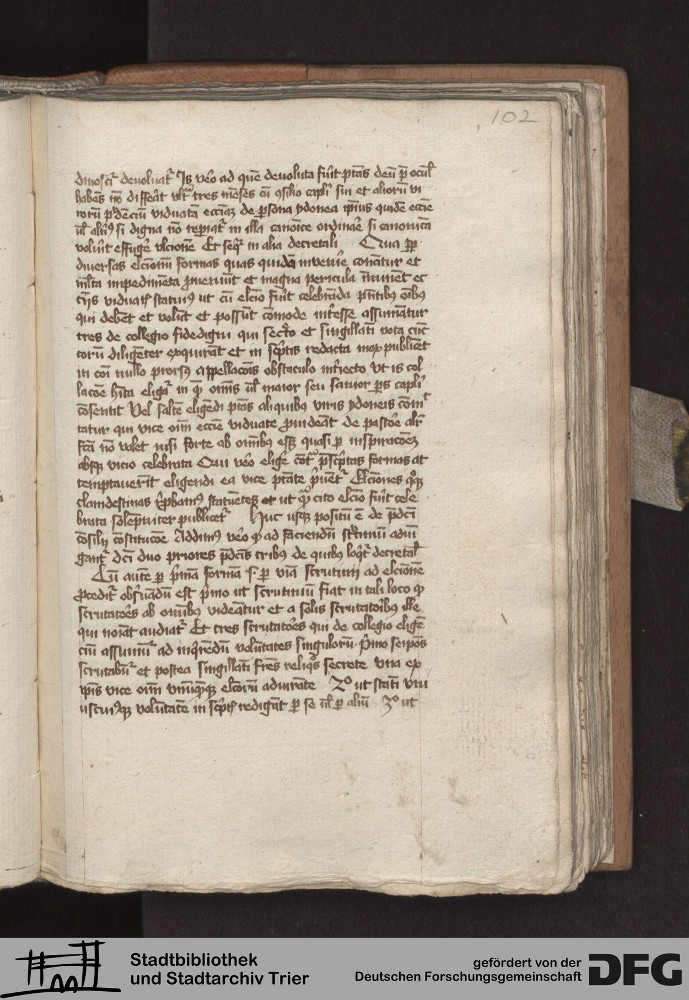 102
dinoscit devoluat Is vero ad quē devoluta fuit ptās deū p̄ ocul
habens nō differat ult tres menses cū ꝯsilio capli sui et alioru vi
roru prudenciū viduatā ecciaʒ de persona ydonea ipius quidē eccie
ul altius si digna nō repiat in illa canonice ordinare si canonicā
voluit effugē ulcionē Et seqr in alia decretali Quia ppt
diversas elcionū formas quas quidā invenire conātur et
mlta impedimeta proveniut et magna pericula iminent ec
cijs viduatis statuimus ut cū elcio fuit celebrāda pntibus oibus
qui debēt et volūt et possūt cōmode interesse assumātur
tres de collegio fidedigni qui secrēto et singillatī vota cunc
toru diligēter exquirāt et in scptis redacta mox publicēt
in coī nullo prorsus appellacōis obstaculo intrecto ut is col
lacōe hita eligat in quē omnes ul maior seu sanior ps capli
cōsentit Vel saltē eligēdi ptās aliquibus viris ydoneis cōmit
tatur qui vice oim eccie viduate provideāt de pastore alit
fcā nō valet nisi forte ab omibus esset quasi p inspiracōeʒ
absqʒ vicio celebrata Qui vero eligē cōt pscptas formas at
temptaverit eligendi ea vice ptāte privēt Elcīones quoqʒ
clandestinas repbamus statuētes ut quā cito elcio fuit cele
brata solepniter publicet Huc usqʒ positū ē de pdcī
cōsilij cōstitucōe Addimus vero qd ad faciendū scrutiniū adiū
gant dcī duo priores pdcis tribus de quibus loqr decretal
Cū autē p pmā formā s p viā scrutinij ad elcionē
pcedit observādū est pmo ut scrutiniū fiat in tali loco qd
scrutatores ab omibus videātur et a solis scrutatoribus ille
qui noiat audiat Et tres scrutatores qui de collegio eligē
ciū assumūt ad inqrēdū volūtates singuloru pmo seipos
scrutabūt et postea singillatī frēs reliqs secrete una ex
ipis vice oim uniuscuiusqʒ elcoru adiurāte 2º ut statī uni
uscuiusqʒ volūtatē in scptis redigāt p se ul p aliū 3º ut
Stadtbibliothek
und Stadtarchiv Trier
gefördert von der
Deutschen Forschungsgemeinschaft
DFG